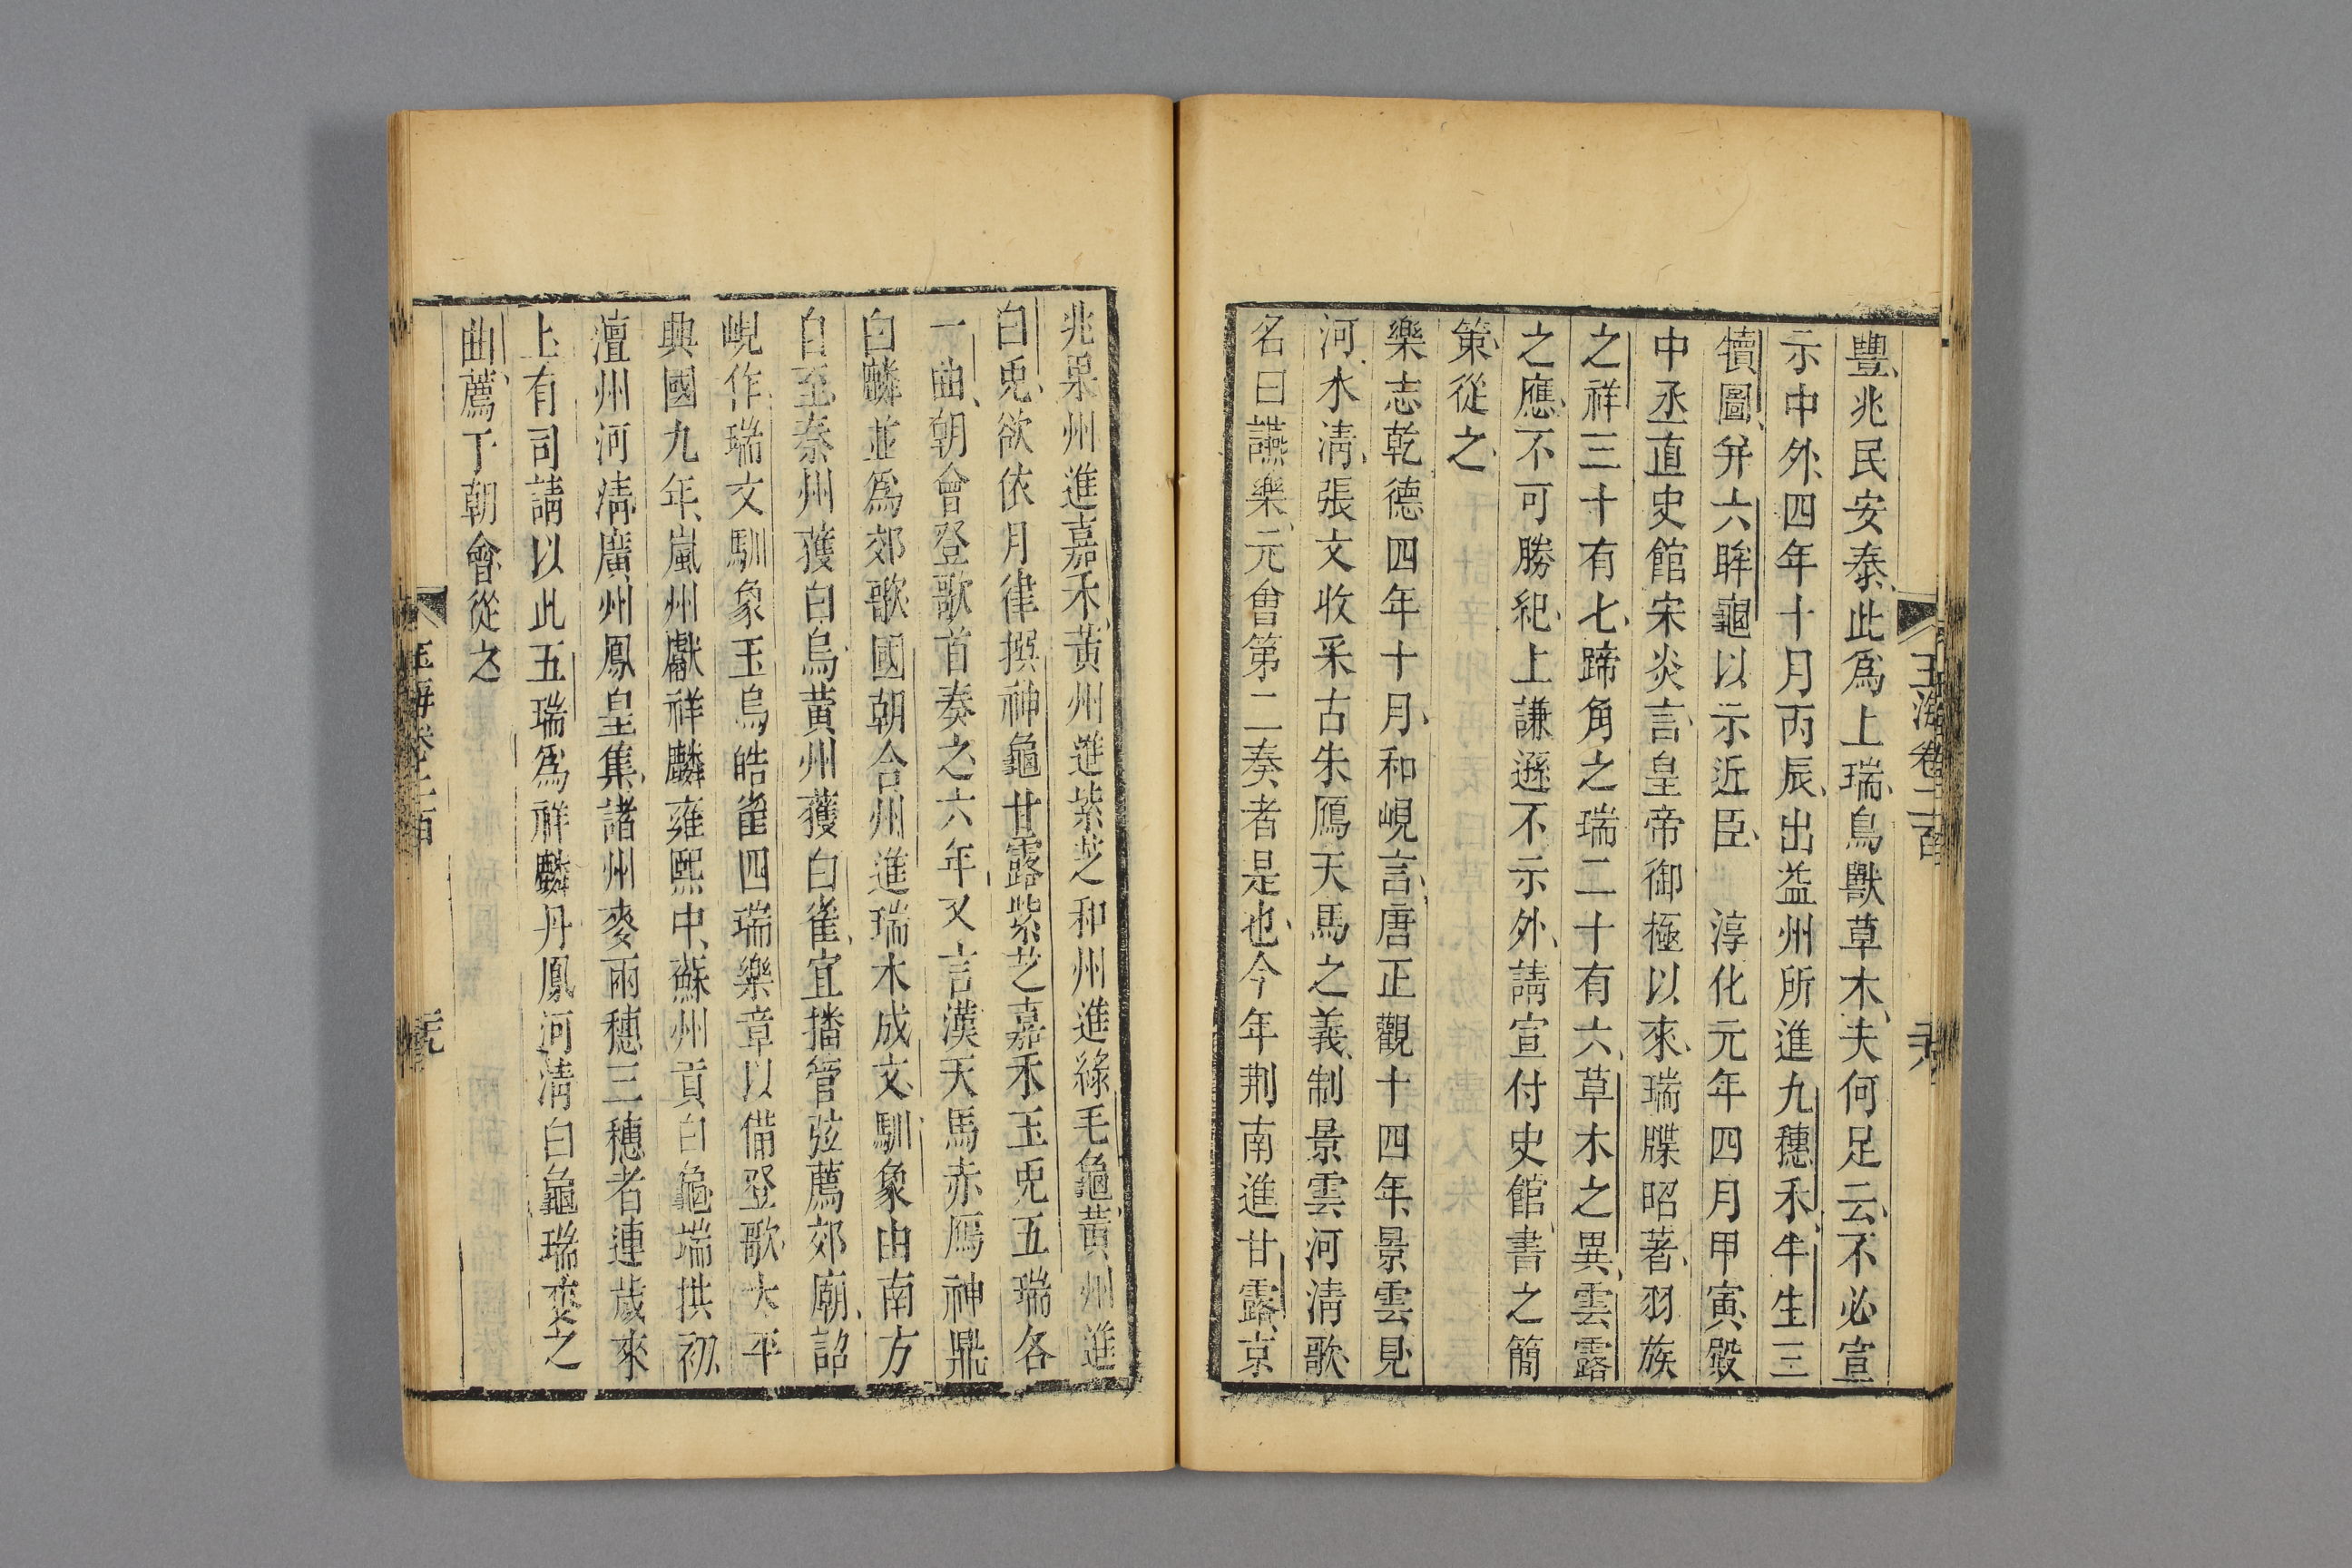 玉海卷二百
豐兆民安泰此爲上瑞鳥獸草木夫何足云不必宣
示中外四年十月丙辰出益州所進九穗禾牛生三
犢圖幷六眸龜以示近臣 淳化元年四月甲寅殿
中丞直史館宋炎言皇帝御極以來瑞牒昭著羽族
之祥三十有七蹄角之瑞二十有六草木之異雲露
之應不可勝紀上謙遜不示外請宣付史館書之簡
策從之
樂志乾德四年十月和峴言唐正觀十四年景雲見
河水淸張文收采古朱鴈天馬之義制景雲河淸歌
名曰讌樂元會第二奏者是也今年荆南進甘露京
兆果州進嘉禾黃州進紫芝和州進綠毛龜黃州進
白兎欲依月律撰神龜甘露紫芝嘉禾玉兎五瑞各
一曲朝會登歌首奏之六年又言漢天馬赤鴈神鼎
白麟並爲郊歌國朝合州進瑞木成文馴象由南方
自至秦州獲白烏黃州獲白雀宜播管弦薦郊廟詔
峴作瑞文馴象玉烏皓雀四瑞樂章以備登歌太平
興國九年嵐州獻祥麟雍熙中蘇州貢白龜端拱初
澶州河淸廣州鳳皇集諸州麥兩穗三穗者連歲來
上有司請以此五瑞爲祥麟丹鳳河淸白龜瑞麥之
曲薦于朝會從之
玉海卷二百